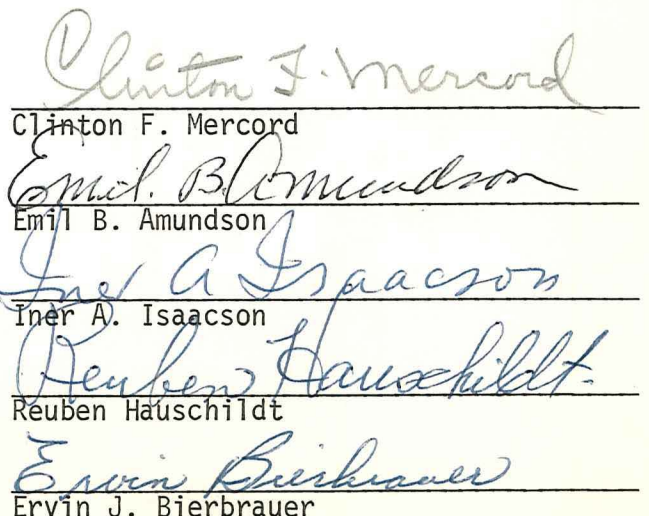 Clinton F. Mercord
Clinton F. Mercord
Emil. B. Amundson
Emil B. Amundson
Iner A Isaacson
Iner A. Isaacson
Reuben Hauschildt.
Reuben Hauschildt
Ervin Bierbrauer
Ervin J. Bierbrauer